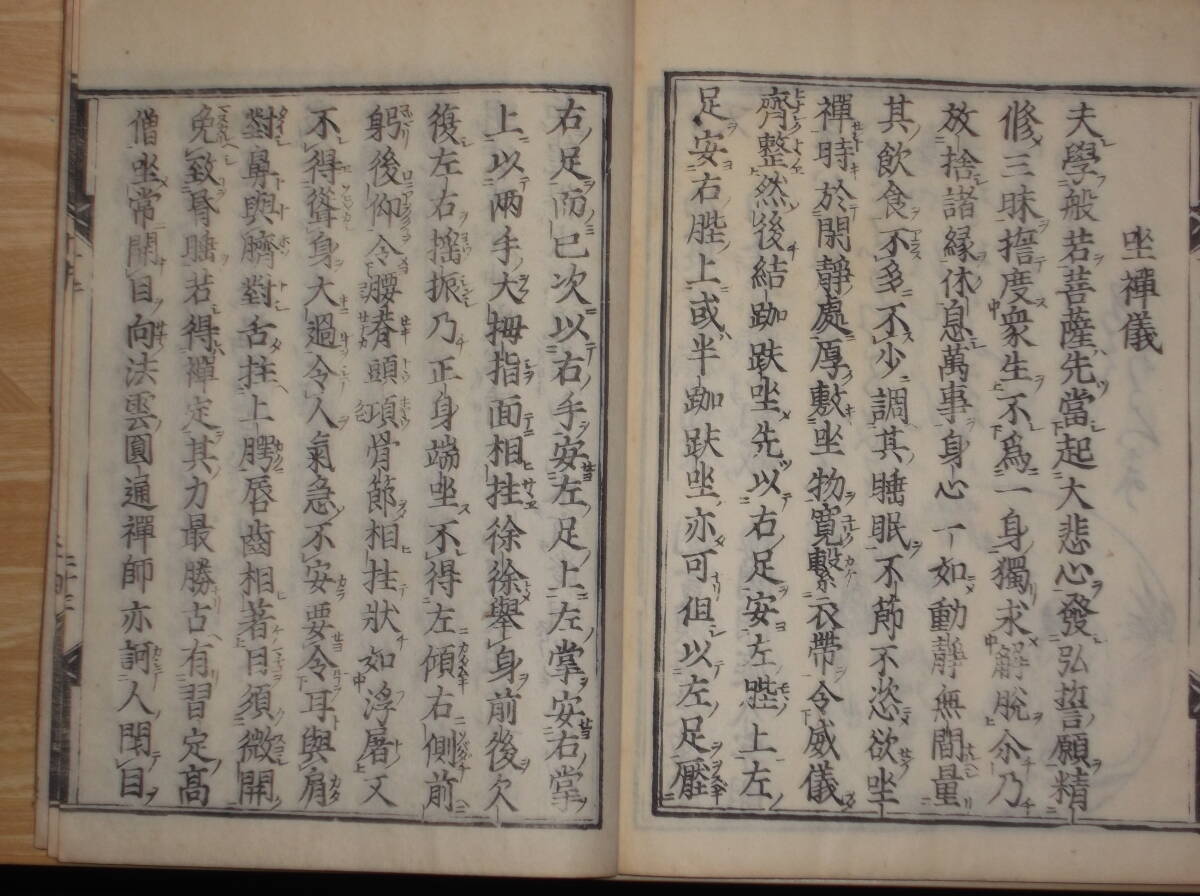 坐禪儀
夫學般若菩薩先當起大悲心發弘誓願精
修三昧誓度衆生不爲一身獨求解脫尒乃
放捨諸緣休息萬事身心一如動靜無間量
其飲食不多不少調其睡眠不節不恣欲坐
禪時於閑靜處厚敷坐物寬繫衣帶令威儀
齊整然後結跏趺坐先以右足安左䏶上左
足安右䏶上或半跏趺坐亦可但以左足壓
右足而已次以右手安左足上左掌安右掌
上以兩手大拇指面相拄徐徐舉身前後欠
復左右搖振乃正身端坐不得左傾右側前
躬後仰令腰脊頭項骨節相拄狀如浮屠又
不得聳身大過令人氣急不安要令耳與肩
對鼻與臍對舌拄上腭唇齒相著目須微開
免致昏睡若得禪定其力最勝古有習定高
僧坐常開目向法雲圓通禪師亦訶人閉目